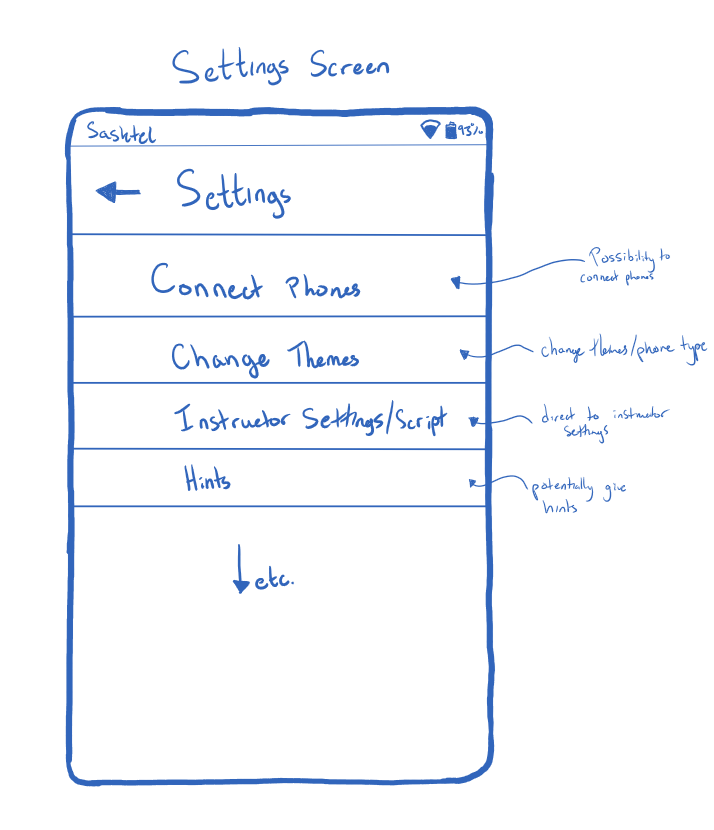 Settings Screen
Sasktel 93%
Settings
Connect Phones
Possibility to
connect phones
Change Themes
change themes/phone type
Instructor Settings/Script
direct to instructor
settings
Hints
potentially give
hints
etc.